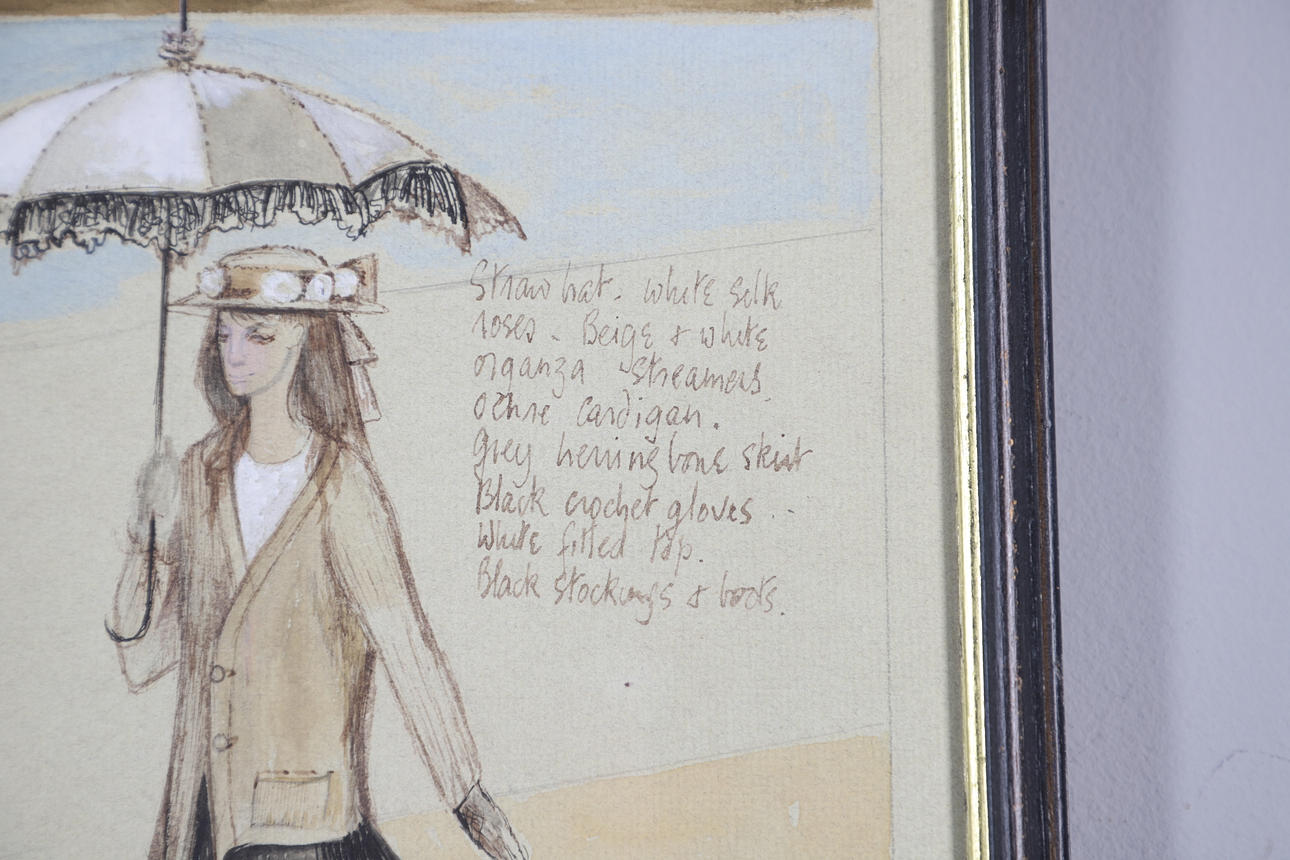 Straw hat. White silk
roses. Beige & white
organza streamers.
Ochre cardigan.
Grey herringbone skirt
Black crochet gloves..
White fitted top.
Black stockings & boots.